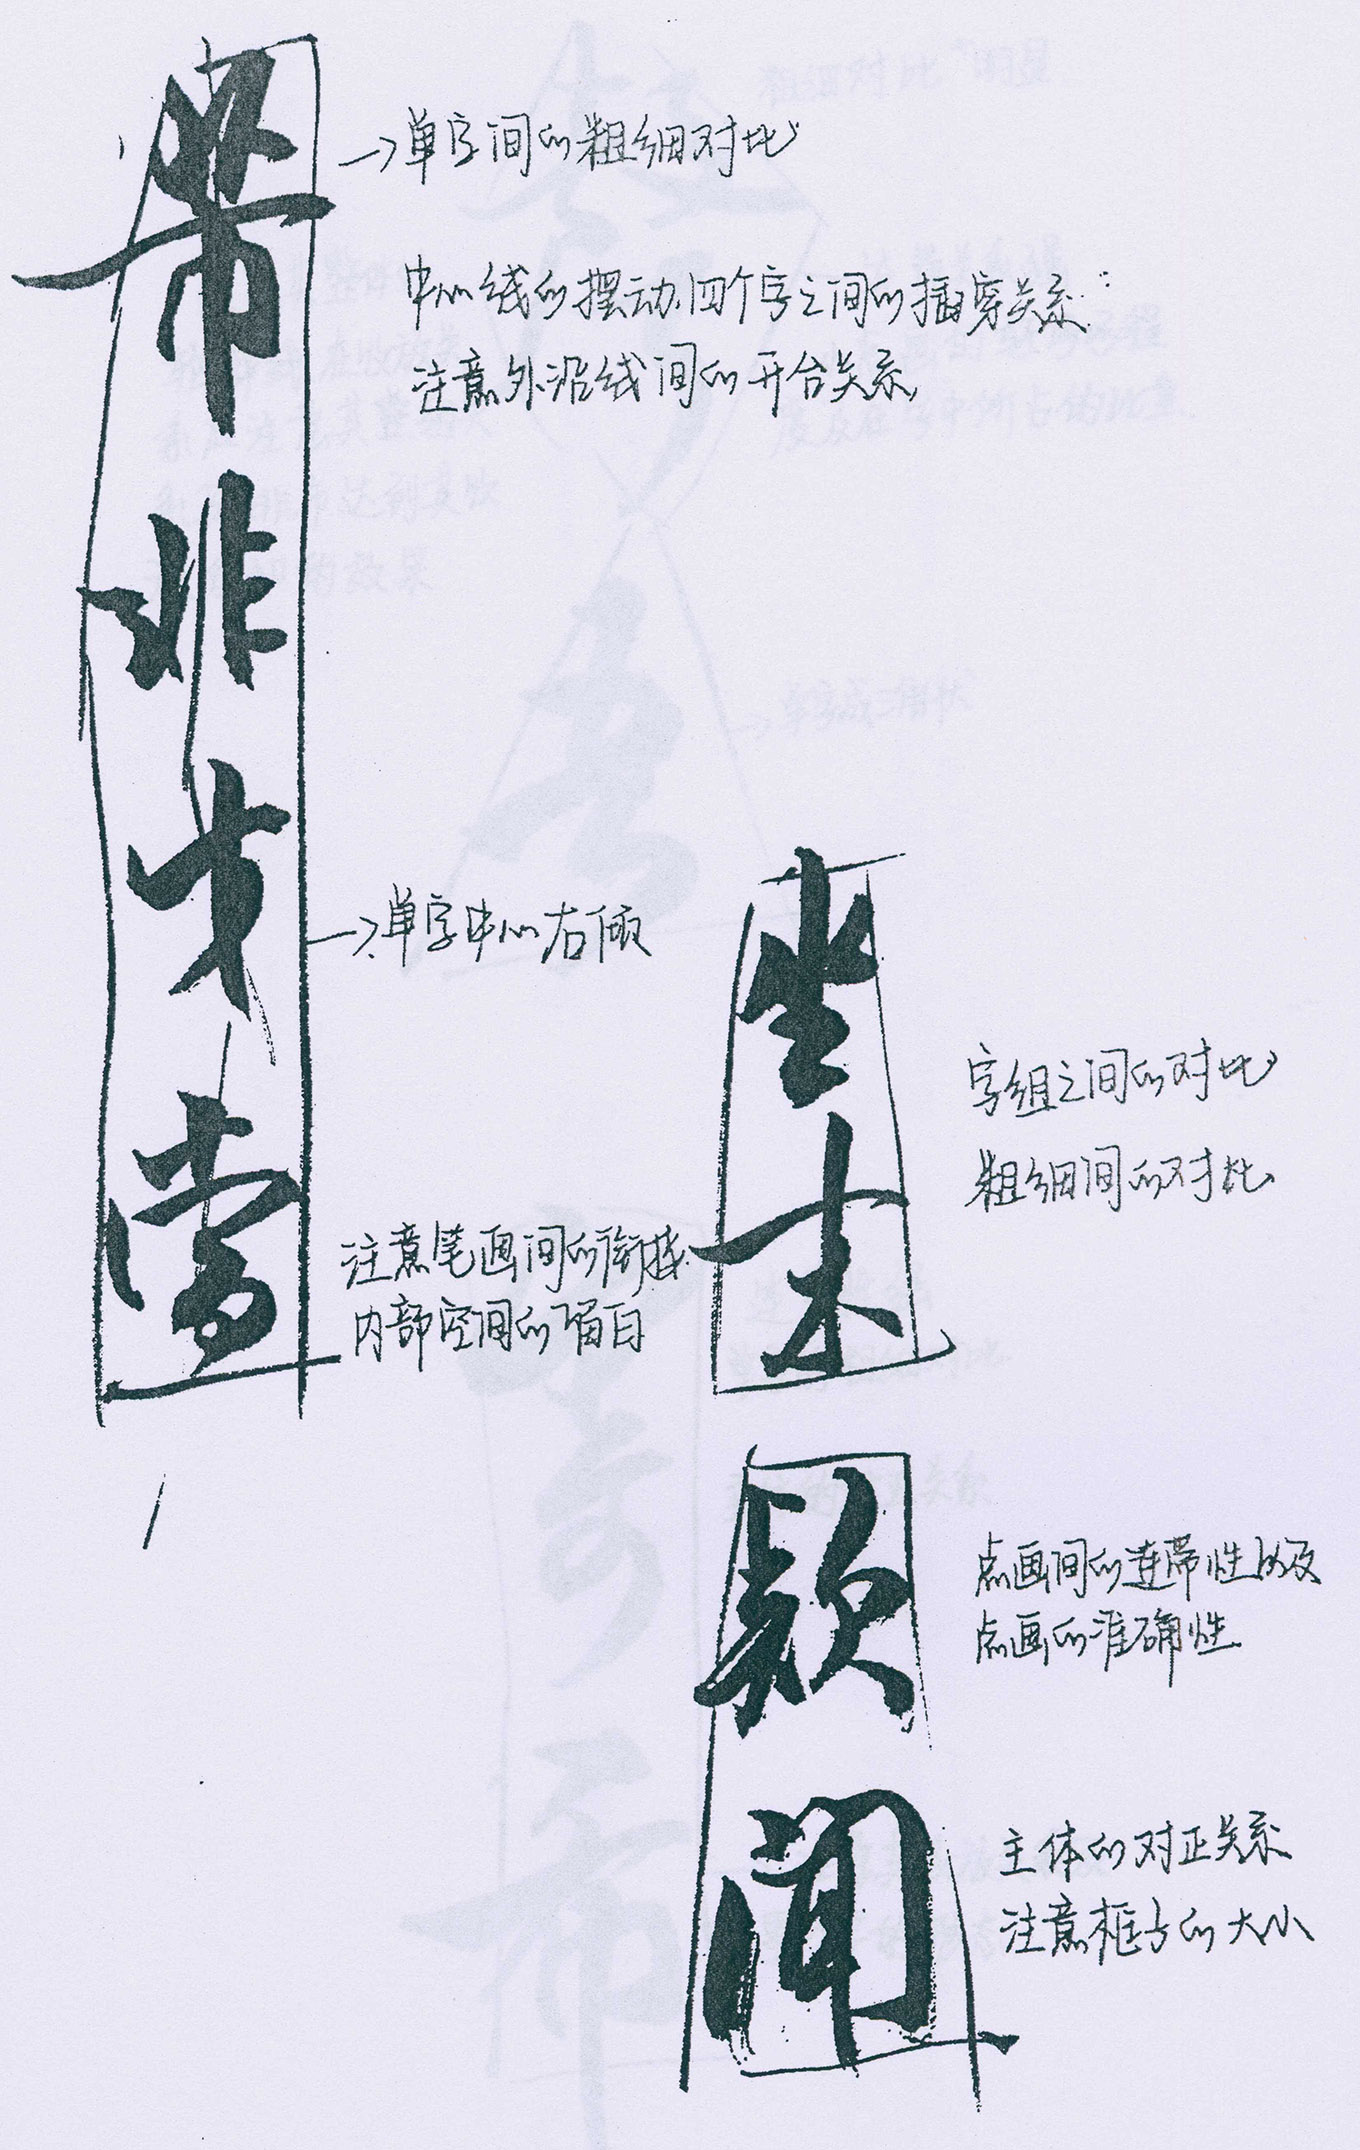 芾
非
才
當
→单字间的粗细对比
中心线的摆动.四个字之间的插穿关系.
注意外沿线间的开合关系
→单字中心右倾
注意笔画间的衔接
内部空间的留白
坐
末
字组之间的对比
粗细间的对比
款
闻
点画间的连带性以及
点画的准确性
主体的对正关系
注意框子的大小